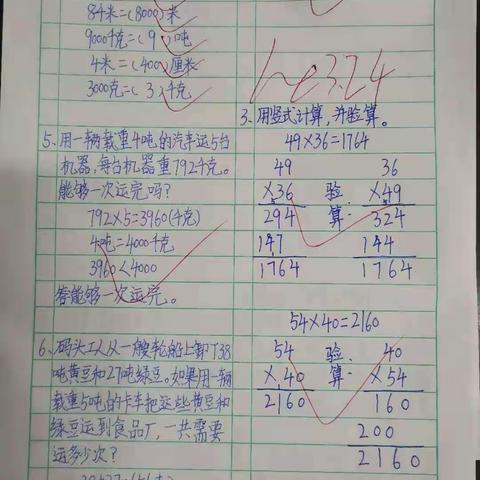 84米=(8000)米
9000千克=(9)吨
4米=(400)厘米
3000克=(3)千克
5、用一辆载重4吨的汽车运5台
机器,每台机器重792千克。
能够一次运完吗?
792×5=3960(千克)
4吨=4000千克
3960<4000
答能够一次运完。
6、码头工人从一艘轮船上卸了38
吨黄豆和27吨绿豆。如果用一辆
载重5吨的卡车把这些黄豆和
绿豆运到食品厂,一共需要
运多少次?
3.24
3、用竖式计算,并验算。
49×36=1764
49 36
×36 验 ×49
294 算: 324
147 144
1764 1764
54×40=2160
54 验 40
×40 算: ×54
2160 160
200
2160